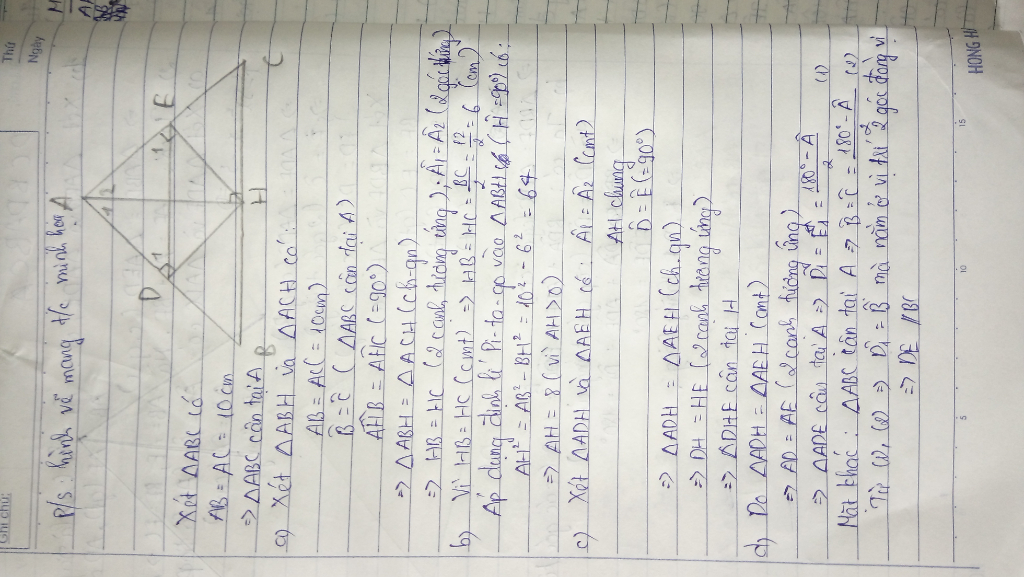 Thứ
Ngày
Ghi chú:
P/s: hình vẽ mang t/c minh họa
A
1
2
D
1
1
E
B
H
C
Xét ΔABC có
AB = AC = 10cm
=> ΔABC cân tại A
a) Xét ΔABH và ΔACH có:
AB = AC (= 10cm)
B̂ = Ĉ (ΔABC cân tại A)
AĤB = AĤC (= 90°)
=> ΔABH = ΔACH (ch-gn)
=> HB = HC (2 cạnh tương ứng); Â1 = Â2 (2 góc tương ứng)
b) Vì HB = HC (cmt) => HB = HC = BC/2 = 12/2 = 6 (cm)
Áp dụng định lí Pi-ta-go vào ΔABH (Ĥ = 90°) có:
AH² = AB² - BH² = 10² - 6² = 64
=> AH = 8 (vì AH > 0)
c) Xét ΔADH và ΔAEH có: Â1 = Â2 (cmt)
AH chung
D̂ = Ê (= 90°)
=> ΔADH = ΔAEH (ch.gn)
=> DH = HE (2 cạnh tương ứng)
=> ΔDHE cân tại H
d) Do ΔADH = ΔAEH (cmt)
=> AD = AE (2 cạnh tương ứng)
=> ΔADE cân tại A => D̂1 = Ê1 = 180° - Â/2 (1)
Mặt khác: ΔABC cân tại A => B̂ = Ĉ = 180° - Â/2 (2)
Từ (1), (2) => D̂1 = B̂ mà nằm ở vị trí 2 góc đồng vị
=> DE // BC
5
10
15
HONG H